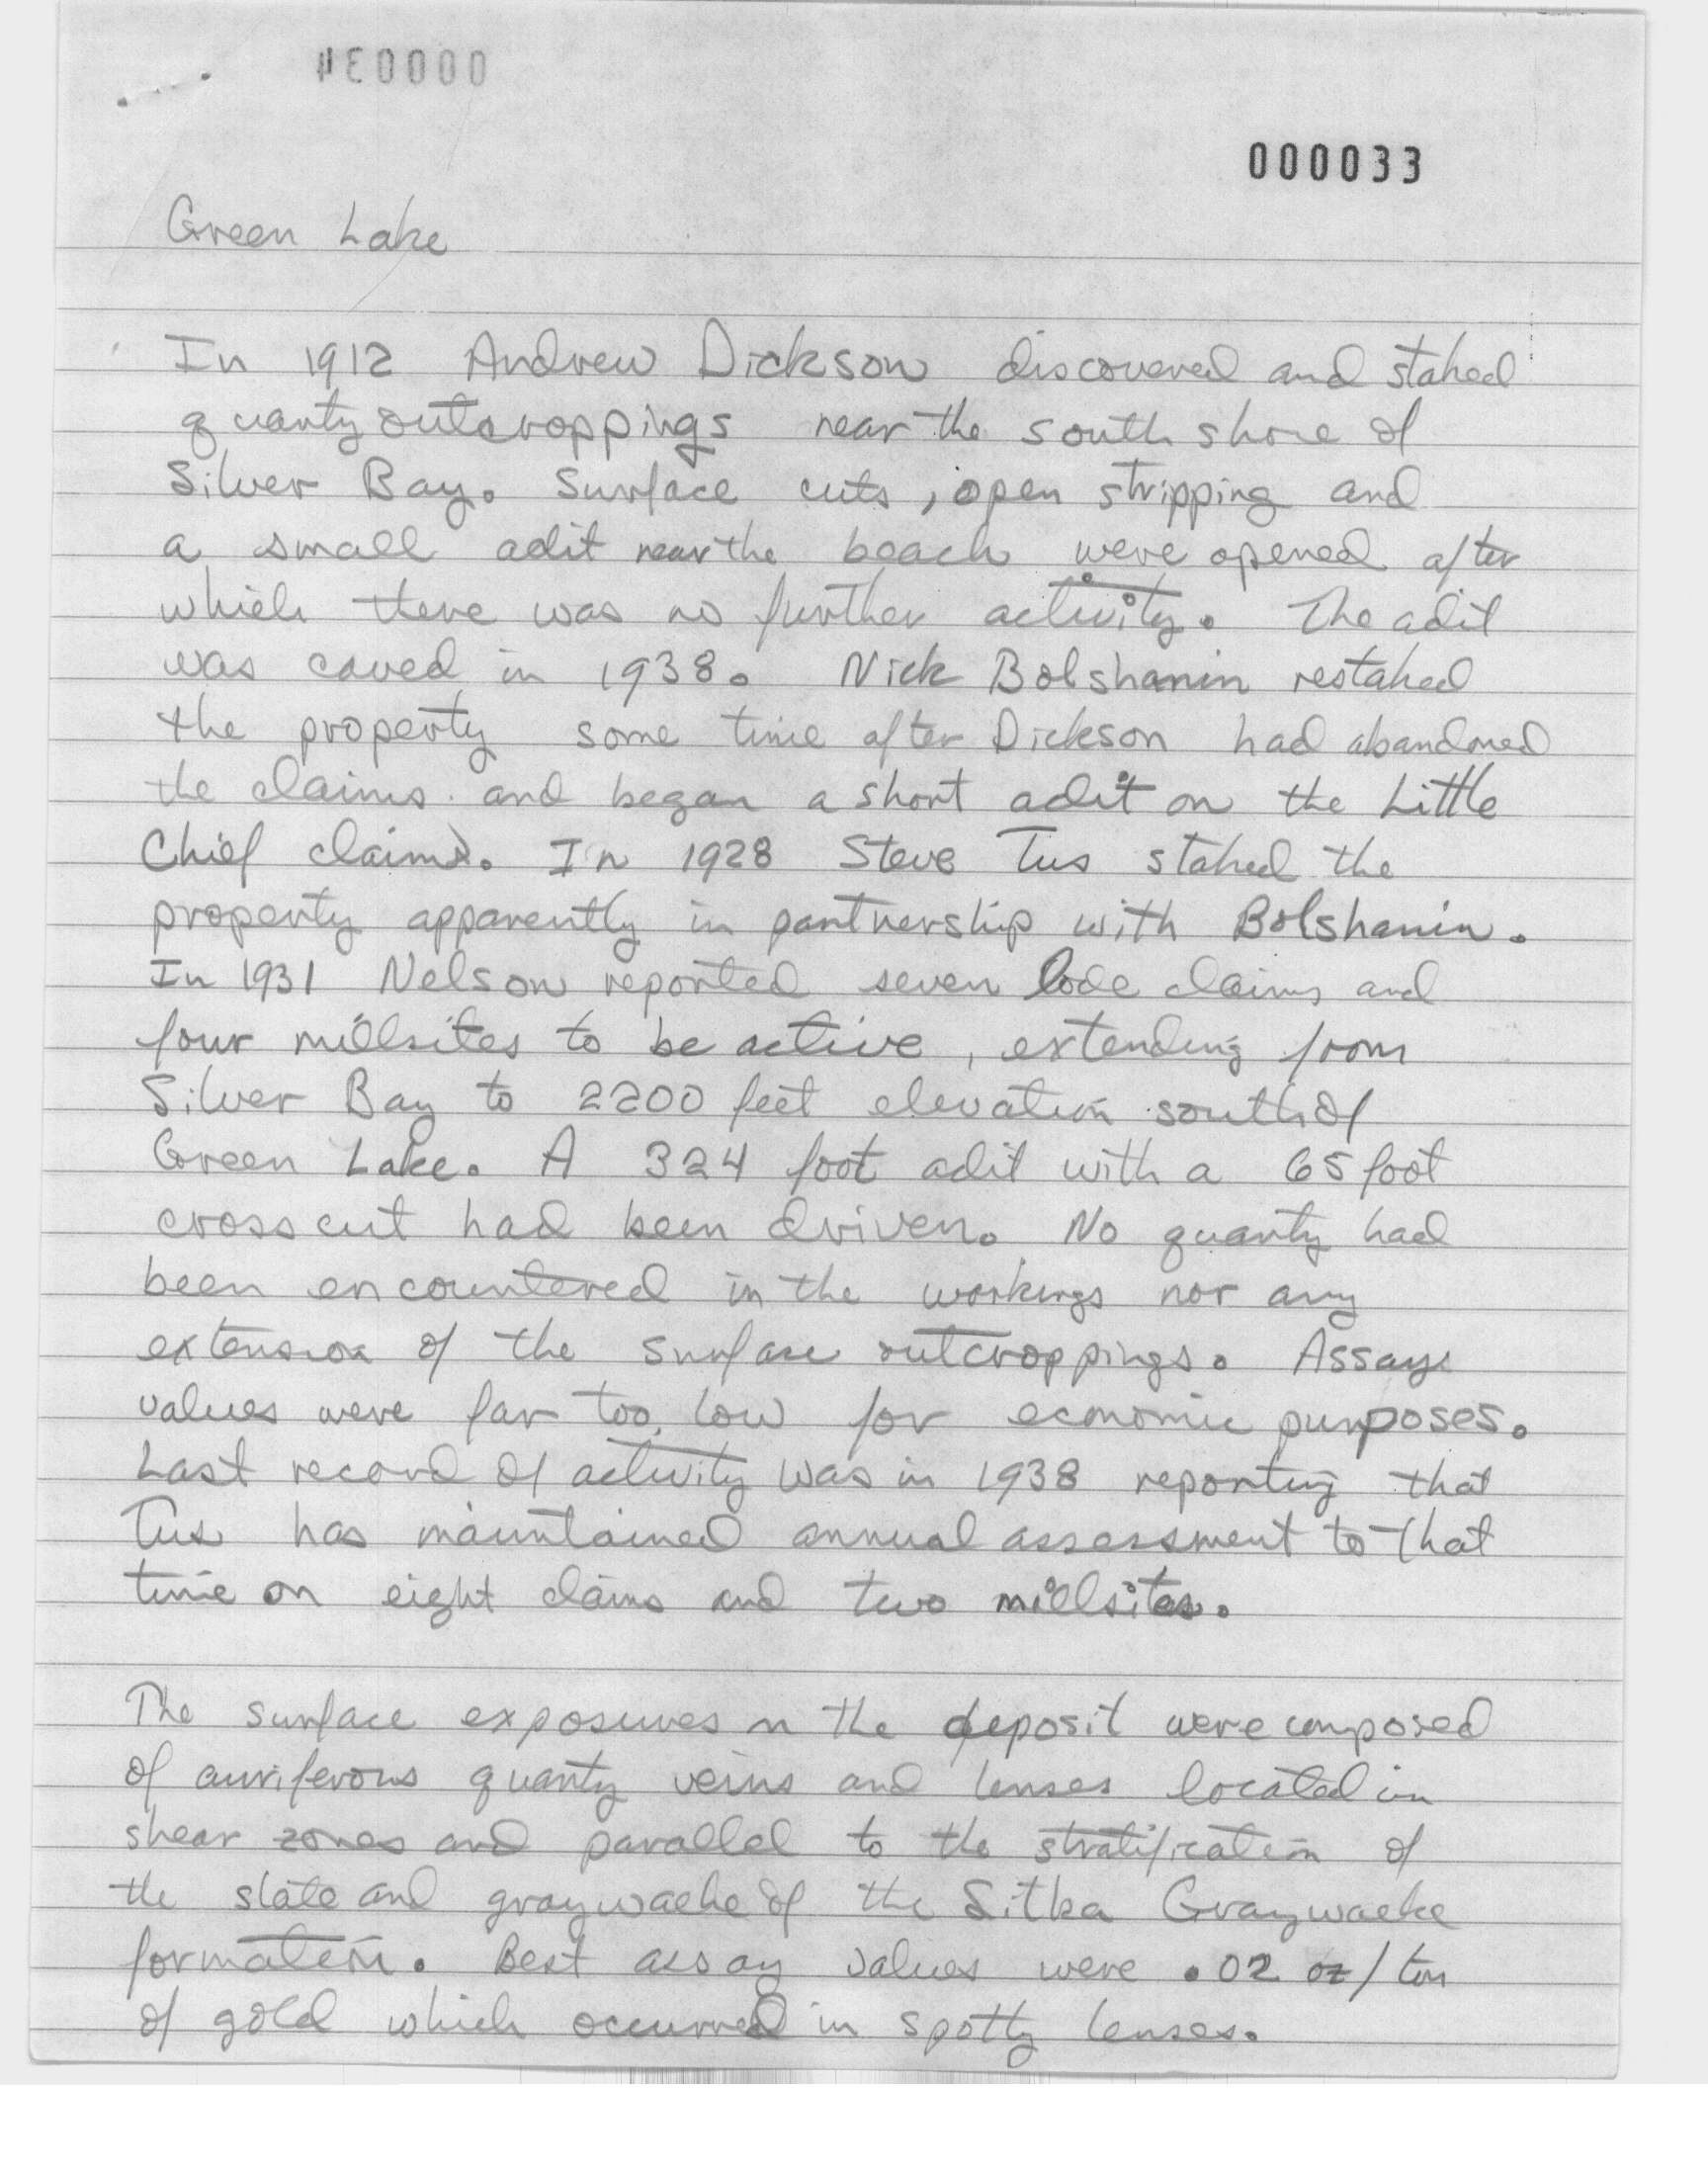 000033
Green Lake
In 1912 Andrew Dickson discovered and staked
quartz outcroppings near the south shore of
Silver Bay. Surface cuts, open stripping and
a small adit near the beach were opened after
which there was no further activity. The adit
was caved in 1938. Nick Bolshanin restaked
the property some time after Dickson had abandoned
the claims and began a short adit on the Little
Chief claims. In 1928 Steve Tus staked the
property apparently in partnership with Bolshanin.
In 1931 Nelson reported seven lode claims and
four millsites to be active, extending from
Silver Bay to 2200 feet elevation south of
Green Lake. A 324 foot adit with a 65 foot
crosscut had been driven. No quartz had
been encountered in the workings nor any
extension of the surface outcroppings. Assays
values were far too low for economic purposes.
Last record of activity was in 1938 reporting that
Tus has maintained annual assessment to that
time on eight claims and two millsites.
The surface exposures on the deposit were composed
of auriferous quartz veins and lenses located in
shear zones and parallel to the stratification of
the slate and graywacke of the Sitka Graywacke
formation. Best assay values were .02 oz/ton
of gold which occurred in spotty lenses.